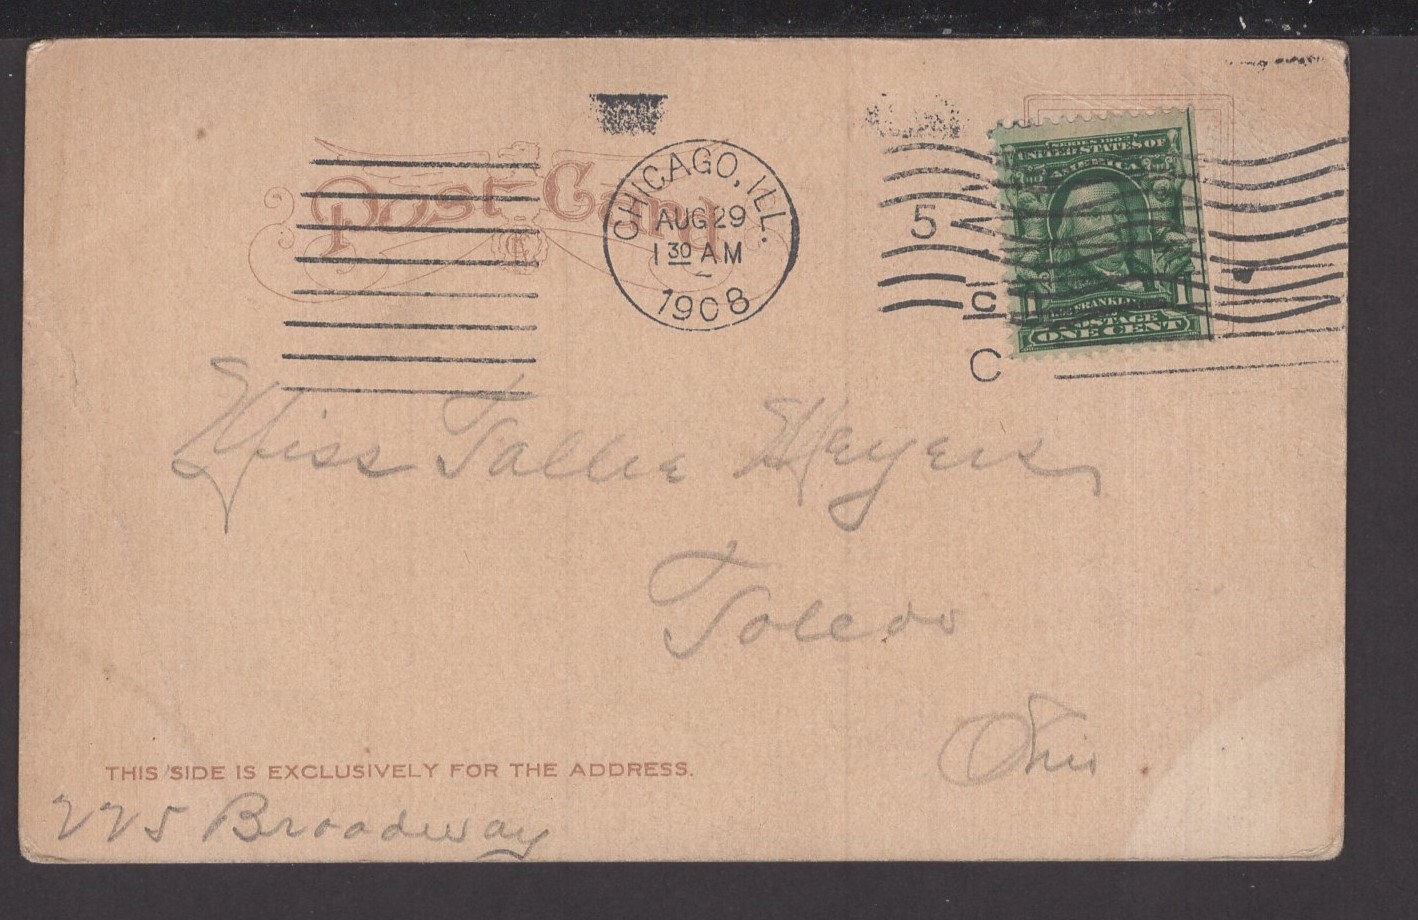 Post Card
CHICAGO, ILL.
AUG 29
1 30 AM
1908
5
C
C
SERIES 1902
UNITED STATES OF
AMERICA
FRANKLIN
POSTAGE
1
ONE CENT
Miss Tallie Meyers,
Toledo
Ohio
THIS SIDE IS EXCLUSIVELY FOR THE ADDRESS.
225 Broadway